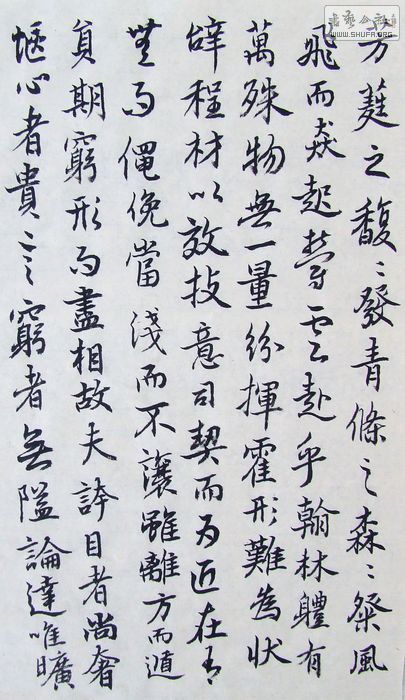 芳蕤之馥〻發青條之森〻粲風
飛而猋起鬱雲赴乎翰林體有
萬殊物無一量紛揮霍形難為狀
辭程材以效技意司契而為匠在有
無而僶俛當淺而不讓雖離方而遁
員期窮形而盡相故夫誇目者尚奢
愜心者貴言窮者無隘論達唯曠
WWW.SHUFA.ORG